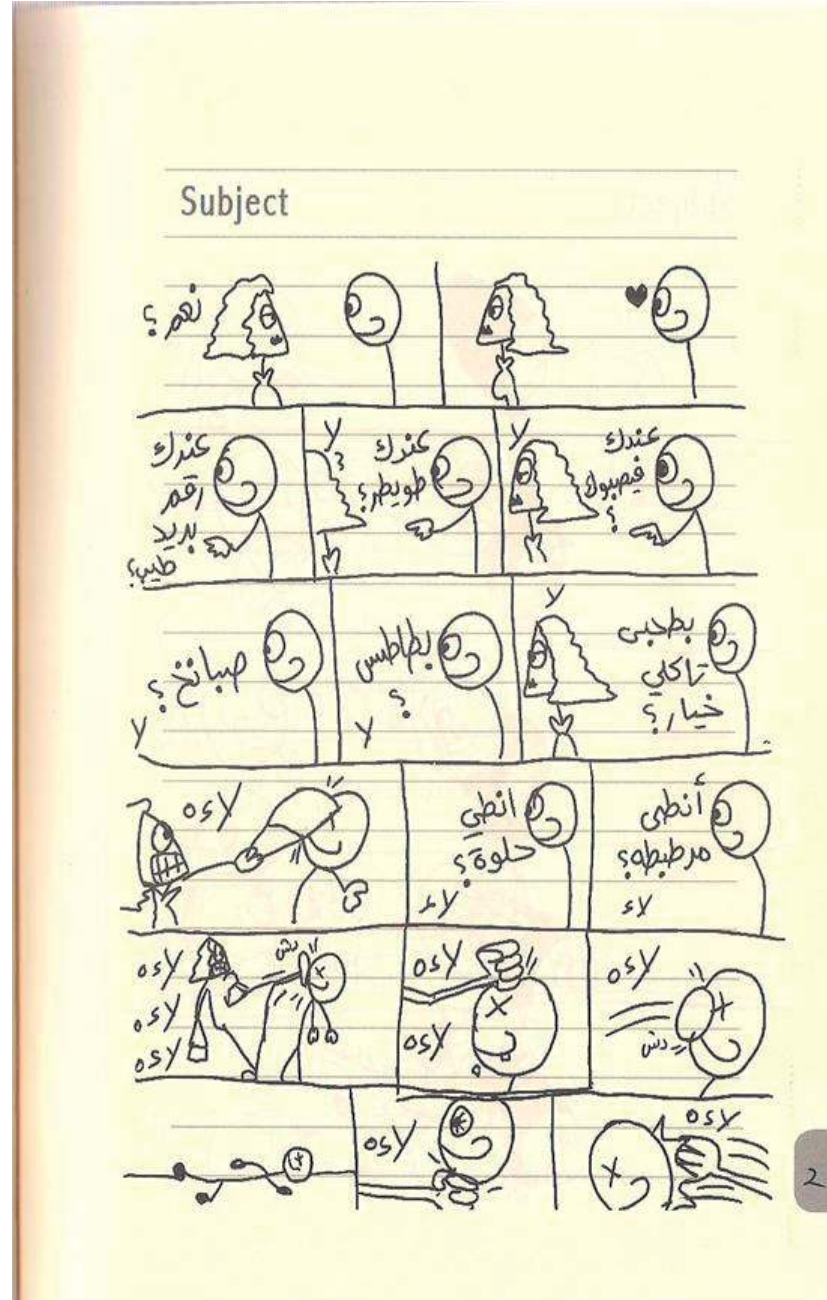 Subject
نعم؟
عندك
فيصبوك
؟
لا
عندك
طويطر؟
لا
عندك
رقم
بريد
طيب؟
بطحبي
تاكلي
خيار؟
لا
بطاطس
؟
لا
صبانخ؟
لا
أنطي
مرطبطه؟
لاء
انطي
حلوة؟
لاء
لاءه
لاءه
دش
لاءه
لاءه
دش
لاءه
لاءه
لاءه
لاءه
لاءه
2